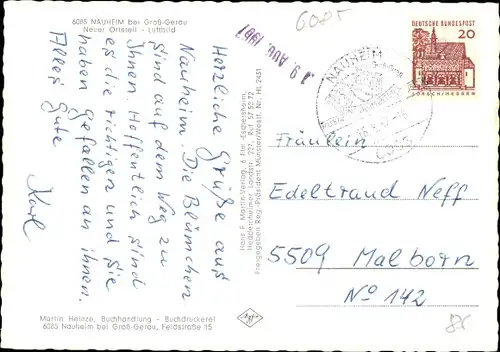 6085 NAUHEIM bei Groß-Gerau
Neuer Ortsteil - Luftbild
Herzliche Grüße aus
Nauheim. Die Blümchen
sind auf dem Weg zu
Ihnen. Hoffentlich sind
es die richtigen und Sie
haben gefallen an ihnen.
Alles Gute
Karl
Martin Heinze, Buchhandlung - Buchdruckerei
6085 Nauheim bei Groß-Gerau, Feldstraße 15
Hans F. Martin-Verlag, 6 Ffm.-Eschersheim,
Heddernheimer Landstr. 227, Ruf 57 50 72
Freigegeben Reg.-Präsident Münster/Westf. Nr. HL 2451
19. AUG. 1967
6085
NAUHEIM
6085
DEUTSCHE BUNDESPOST
20
LORSCH/HESSEN
Fräulein
Edeltraud Neff
5509 Malborn
No 142